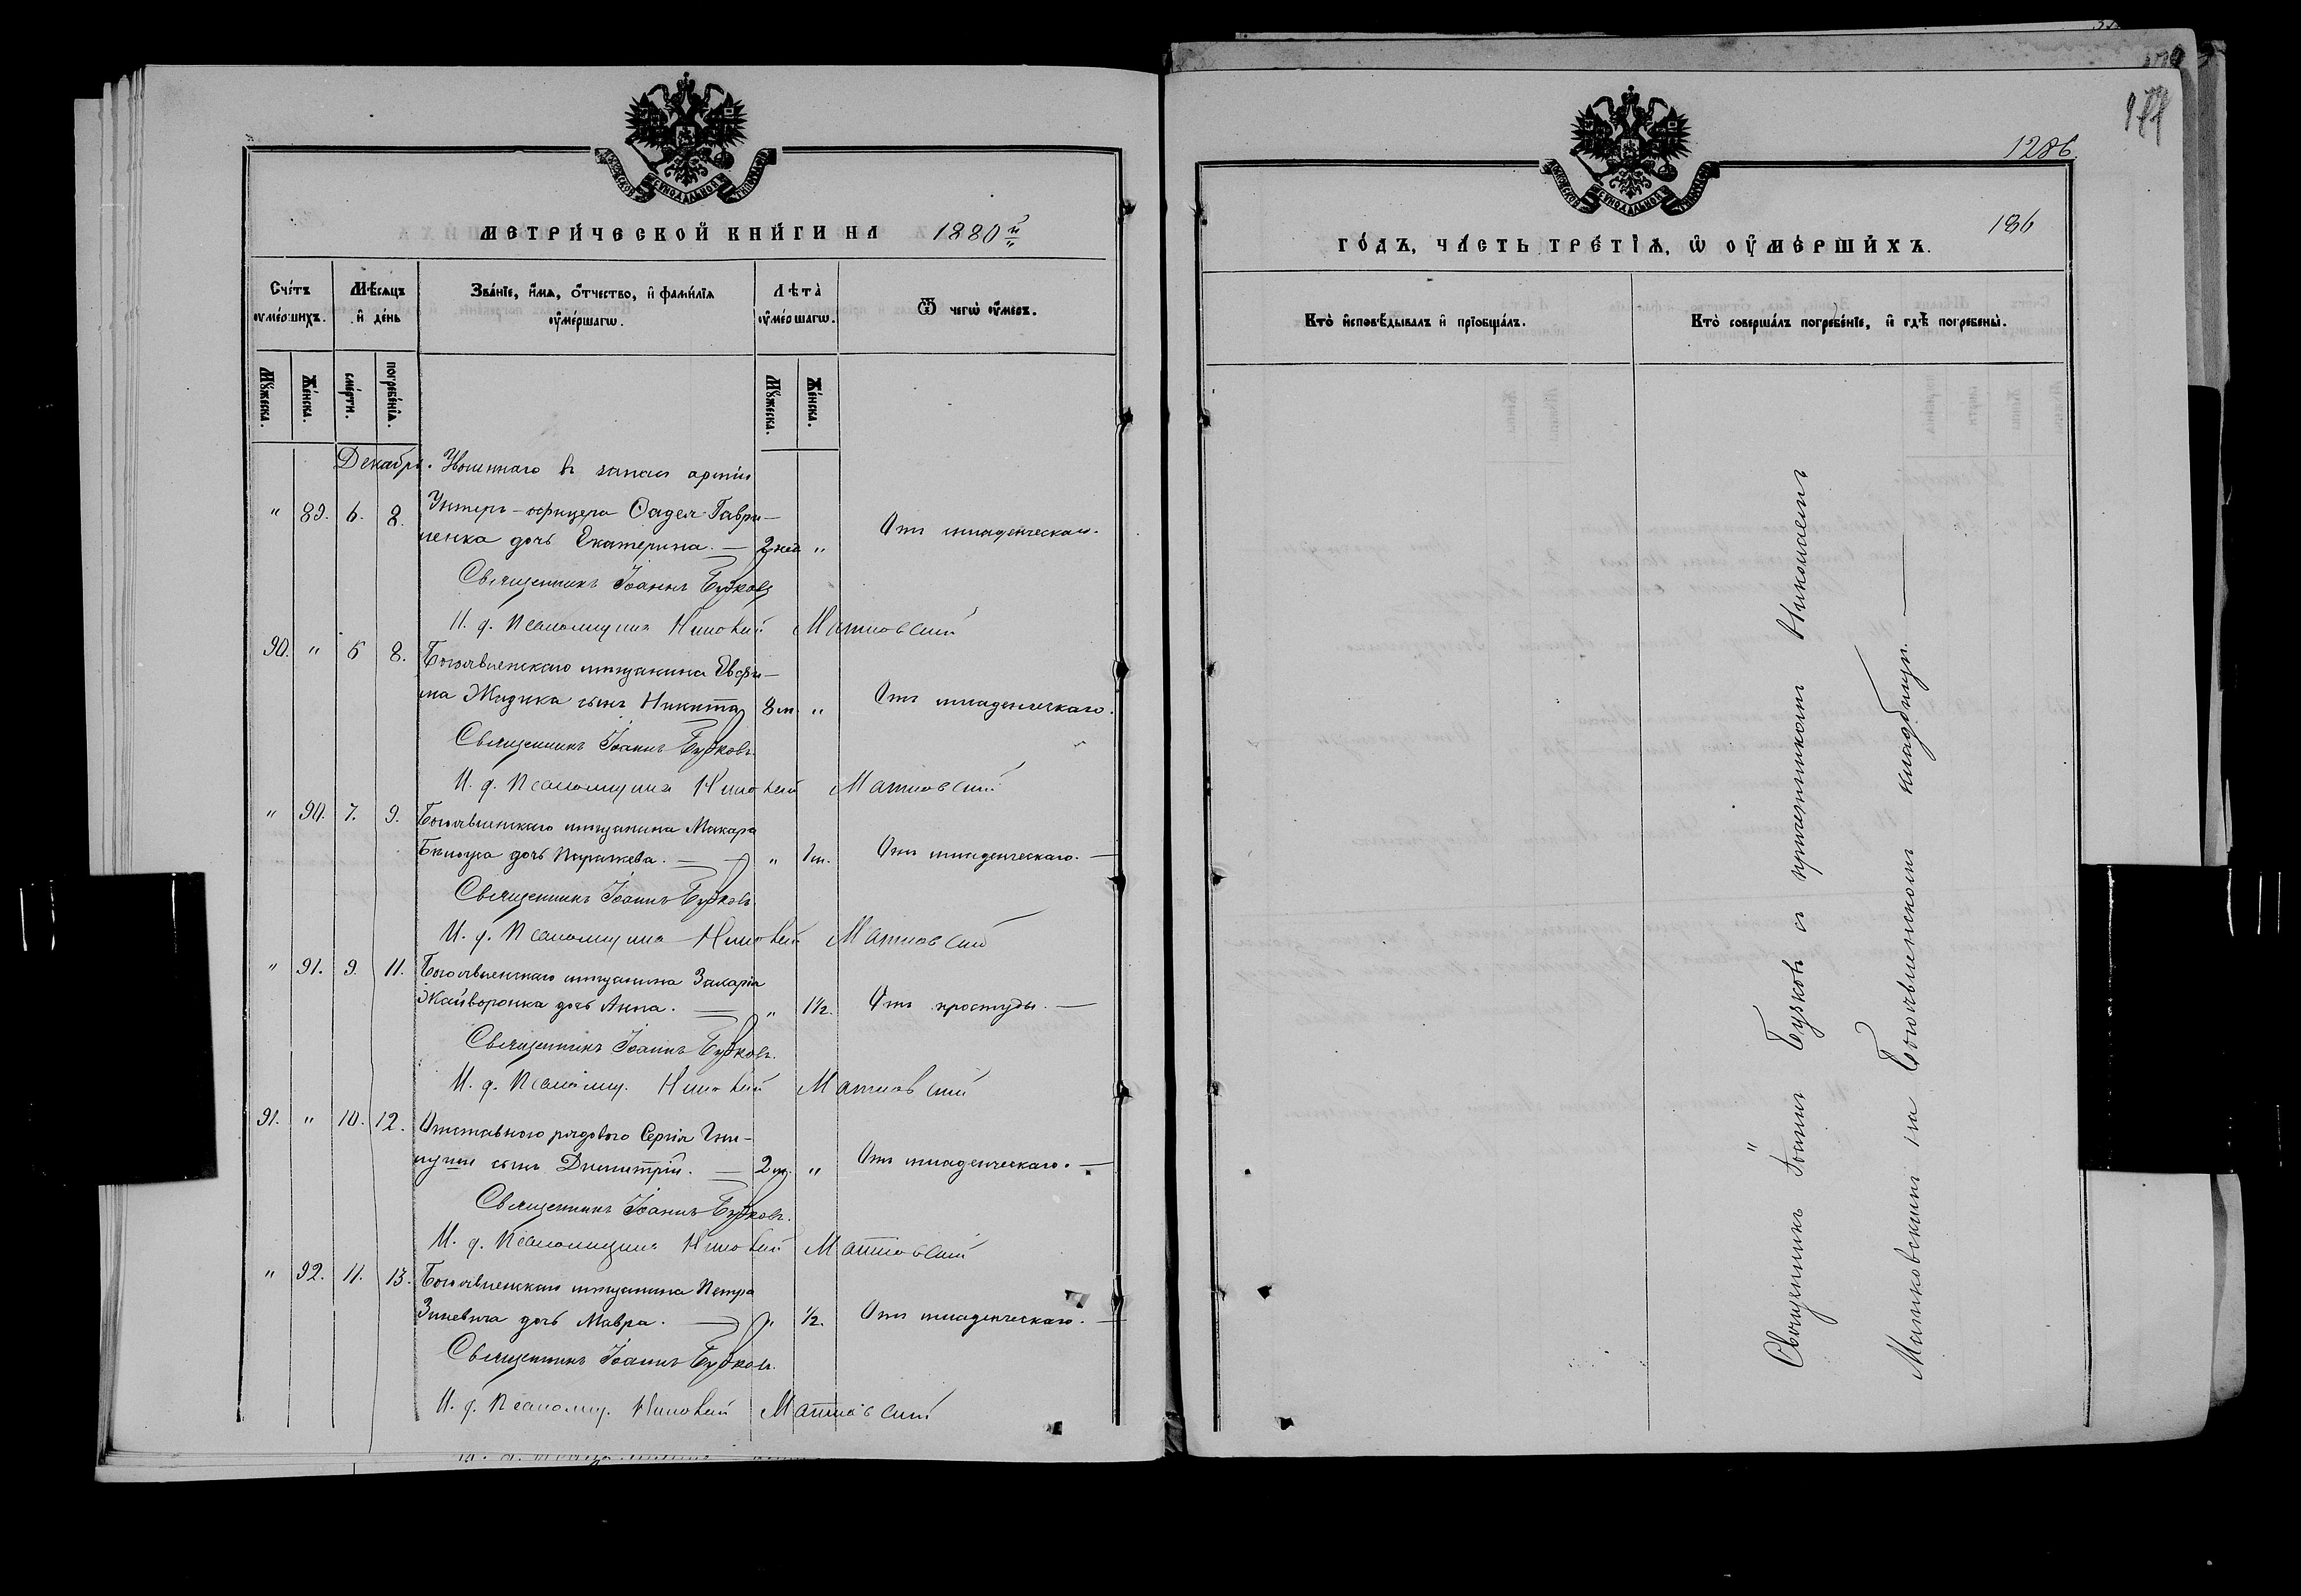 МОСКОВСКОЙ СΥНОДАЛЬНОЙ ТИПОГРАФІИ
МЕТРИ́ЧЕСКОЙ КНИ́ГИ НА 1880й
Сче́тъ ᲂумерши́хъ.
Мѣ́сяцъ и҆ де́нь
Зва́ніе, и҆́мя, ѻ҆́тчество, и҆ фами́лія ᲂу҆ме́ршагѡ.
Лѣта̀ ᲂу҆ме́ршагѡ.
Ѿ чегѡ̀ ᲂу҆́меръ.
Мꙋ́жеска.
Же́нска.
сме́рти.
погребе́нія.
Мꙋ́жеска.
Же́нска.
Декабрь. Уволеннаго въ запасъ арміи
" 89. 6. 8. Унтеръ-офицера Фадея Гаври-
ленка дочь Екатерина. — 2 нед " Отъ младенческаго.
Священникъ Іоаннъ Бузковъ
И. д. Псаломщика Николай Матковскій
90. " 6 8. Богоявленскаго мѣщанина Евфи-
ма Жидика сынъ Никита 8 м. " Отъ младенческаго.
Священникъ Іоаннъ Бузковъ.
И. д. Псаломщика Николай Матковскій
" 90. 7. 9. Богоявленскаго мѣщанина Макара
Бѣлоуса дочь Параскева. — " 1 м. Отъ младенческаго. —
Священникъ Іоаннъ Бузковъ.
И. д. Псаломщика Николай Матковскій
" 91. 9. 11. Богоявленскаго мѣщанина Захарія
Жайворонка дочь Анна. — " 1½. Отъ простуды. —
Священникъ Іоаннъ Бузковъ.
И. д. Псаломщ. Николай Матковскій
91. " 10. 12. Отставного рядового Сергія
сынъ Димитрій. — 2 " Отъ младенческаго. —
Священникъ Іоаннъ Бузковъ.
И. д. Псаломщика Николай Матковскій
" 92. 11. 13. Богоявленскаго мѣщанина Петра
Зиневича дочь Мавра. — " ½. Отъ младенческаго. —
Священникъ Іоаннъ Бузковъ.
И. д. Псаломщ. Николай Матковскій
1286
186
МОСКОВСКОЙ СΥНОДАЛЬНОЙ ТИПОГРАФІИ
ГО́ДЪ, ЧА́СТЬ ТРЕ́ТІѦ, Ѡ҆ ОУ҆МЕ́РШИХЪ.
Кто̀ и҆сповѣ́дывалъ и҆ пріѻбща́лъ.
Кто̀ соверша́лъ погребе́ніе, и҆ гдѣ̀ погребены̀.
Священникъ Іоаннъ Бузковъ съ причетникомъ Николаемъ
Матковскимъ на Богоявленскомъ кладбищѣ. —